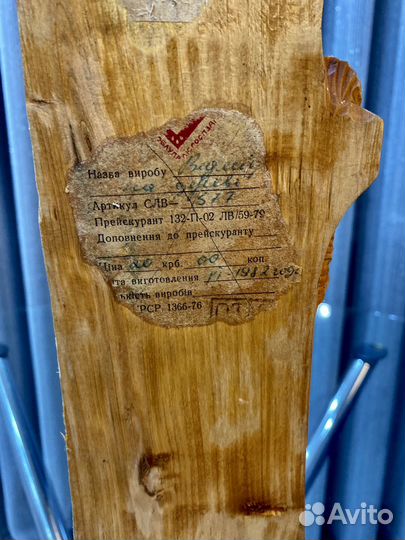 Назва виробу
на дереві
Артикул СЛВ— 577
Прейскурант 132-П-02 ЛВ/59-79
Доповнення до прейскуранту
Ціна 20 крб. 00 коп.
та виготовлення 1982
кість виробів
РСР 1366-76
Avito